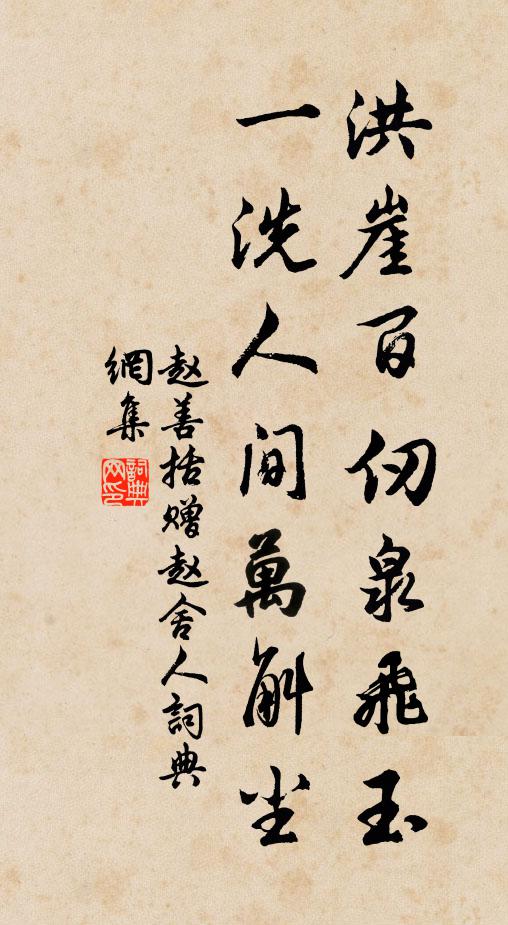 洪崖百仞泉飛玉
一洗人間萬斛塵
赵善括赠赵舍人詞典
網集
詞典
网印